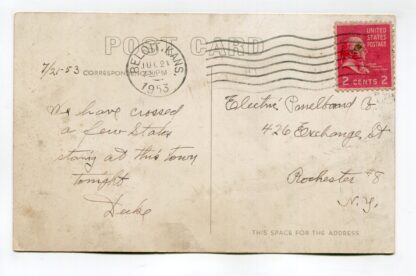 POST CARD
BELOIT, KANS.
JUL 21
PM
1953
UNITED STATES
POSTAGE
2 CENTS 2
7/21-53
CORRESPONDENCE
We have crossed
a few States
staying at this town
tonight
Electric Panelboard Co
426 Exchange St
Rochester #8
N.Y.
THIS SPACE FOR THE ADDRESS